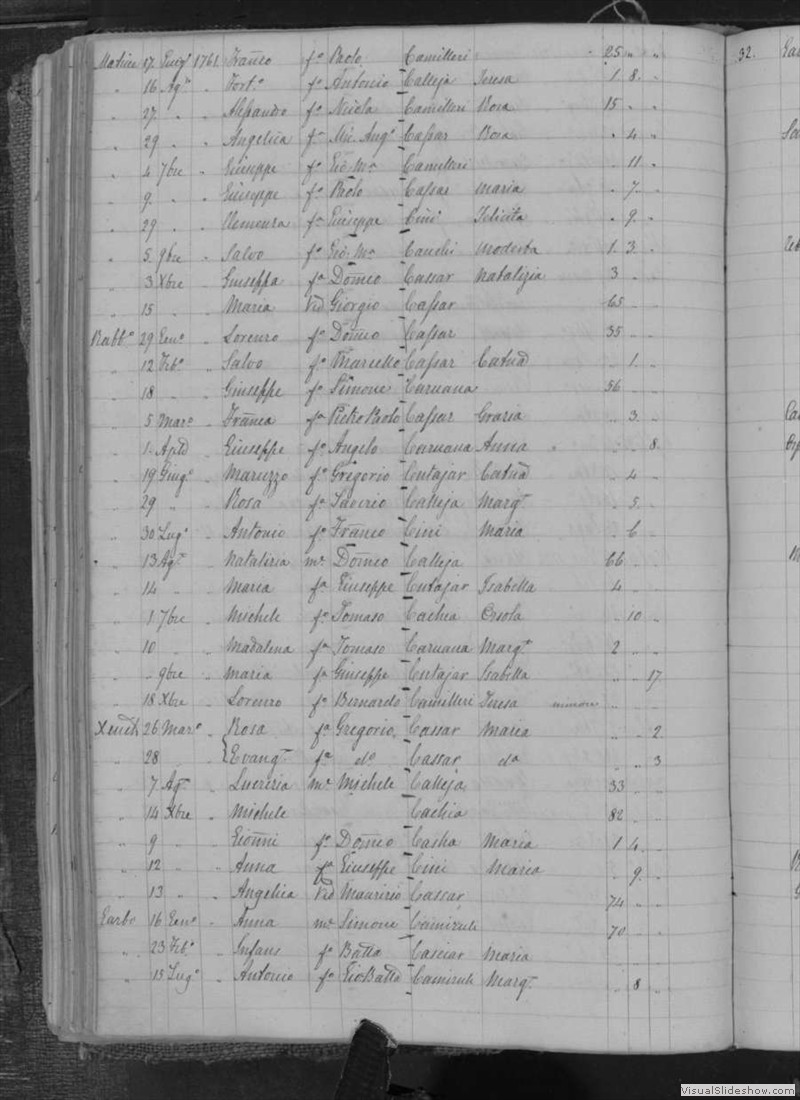 Matrice 17 Giug.o 1761 Franco fo Paolo Camilleri 25 " "
" 16 Ag.o " Fort.o fo Antonio Calleja Teresa 1 8 "
" 27 " " Alessandro fo Nicola Camilleri Rosa 15 " "
" 29 " " Angelica fa Mic. Ang.o Cassar Rosa " 4 "
" 4 7bre " Giuseppe fo Gio. Ma. Camilleri " 11 "
" 9 " " Giuseppe fo Paolo Cassar Maria " 7 "
" 29 " " fa Giuseppe Cini Felicita " 9 "
" 5 9bre " Salvo fo Gio. Ma. Cauchi Modesta 1 3 "
" 3 Xbre " Giuseppa fa Domco Cassar Natalizia 3 " "
" 15 " " Maria vid Giorgio Cassar 65 " "
Rabb.o 29 Gen.o " Lorenzo fo Domco Cassar 35 " "
" 12 Feb.o " Salvo fo Marcello Cassar Catnã " 1 "
" 18 " " Giuseppe fo Simone Caruana 56 " "
" 5 Mar.o " Franca fa Pietro Paolo Cassar Grazia " 3 "
" 1 " Giuseppe fo Angelo Caruana Anna " " 8
" 19 Giug.o " Maruzzo fo Gregorio Cutajar Catnã " 4 "
" 29 " " Rosa fa Saverio Calleja Marg.a " 5 "
" 30 Lug.o " Antonio fo Franco Cini Maria " 6 "
" 13 Ag.o " Natalizia me Domco Calleja 66 " "
" 14 " " Maria fa Giuseppe Cutajar Isabella 4 " "
" 1 7bre " Michele fo Tomaso Cachia Orsola " 10 "
" 10 " " Madalena fa Tomaso Caruana Marg.a 2 " "
" " 9bre " Maria fa Giuseppe Cutajar Isabella " " 17
" 18 Xbre " Lorenzo fo Bernardo Camilleri Teresa " "
26 Mar.o " Rosa fa Gregorio Cassar Maria " " 2
" 28 " Evang.a fa do Cassar da " " 3
" 7 Ag.o " Lucrezia me Michele Calleja 33 " "
" 14 Xbre " Michele Cachia 82 " "
" 9 " " Gionni fo Domco Casha Maria 1 4 "
" 12 " " Anna fa Giuseppe Cini Maria " 9 "
" 13 " " Angelica vid Maurizio Cassar 74 " "
Garbo 16 Gen.o " Anna me Simone Camizuli 70 " "
" 23 Feb.o " Infans fo Batta Casciar Maria " " "
" 15 Lug.o " Antonio fo Gio Batta Camizuli Marg.a " 8 "
32.
VisualSlideshow.com